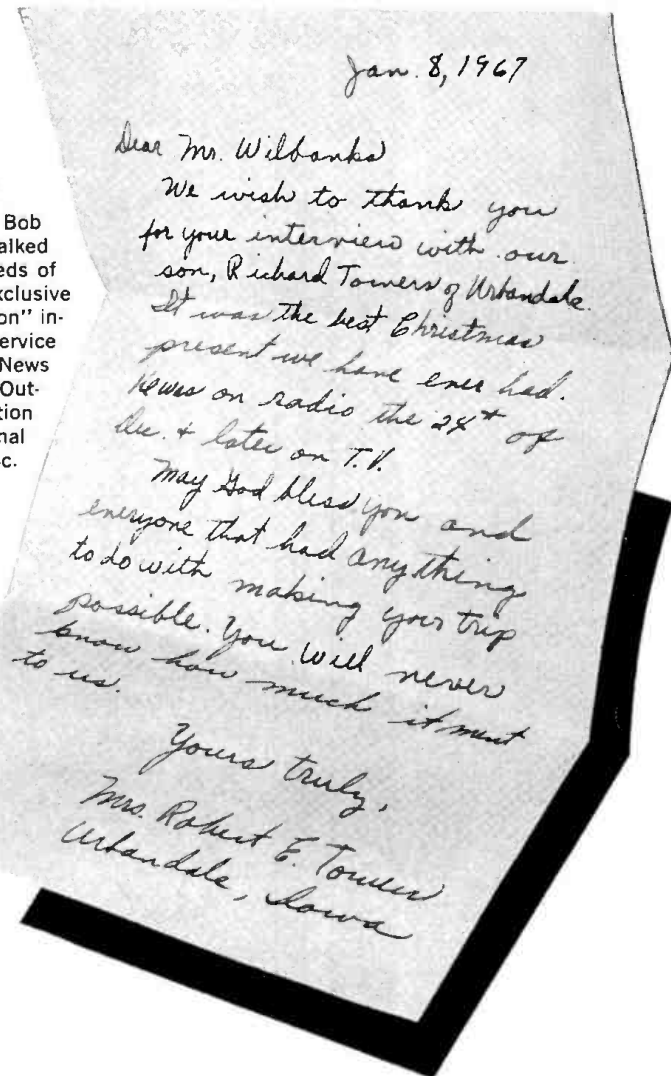 Bob
alked
eds of
xclusive
on" in-
ervice
News
Out-
tion
nal
c.
Jan. 8, 1967
Dear Mr. Wilbanks
We wish to thank you
for your interview with our
son, Richard Towers of Urbandale.
It was the best Christmas
present we have ever had.
News on radio the 24th of
Dec. & later on T.V.
May God bless you and
everyone that had anything
to do with making your trip
possible. You will never
know how much it ment
to us.
Yours truly,
Mrs. Robert E. Towers
Urbandale, Iowa